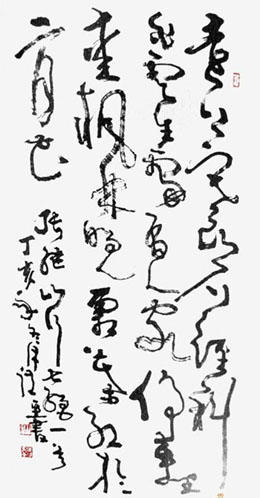 遠上寒山石徑斜
白雲生處有人家停車坐
愛楓林晚霜葉紅於
二月花
山行七絕一首
丁亥年冬月書